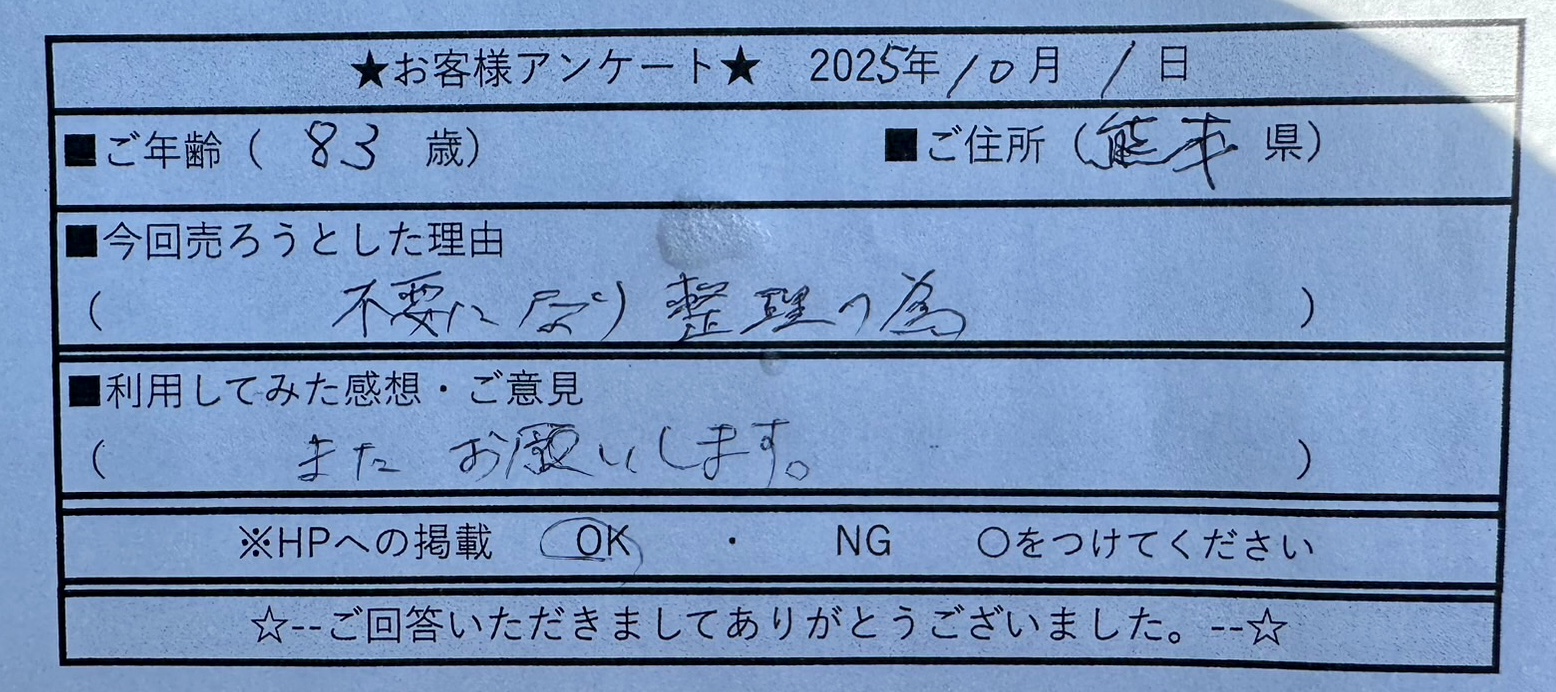 ★お客様アンケート★ 2025年10月1日
■ご年齢（ 83 歳） ■ご住所（熊本 県）
■今回売ろうとした理由
（ 不要になり整理の為 ）
■利用してみた感想・ご意見
（ またお願いします。 ）
※HPへの掲載 OK ・ NG 〇をつけてください
☆--ご回答いただきましてありがとうございました。--☆